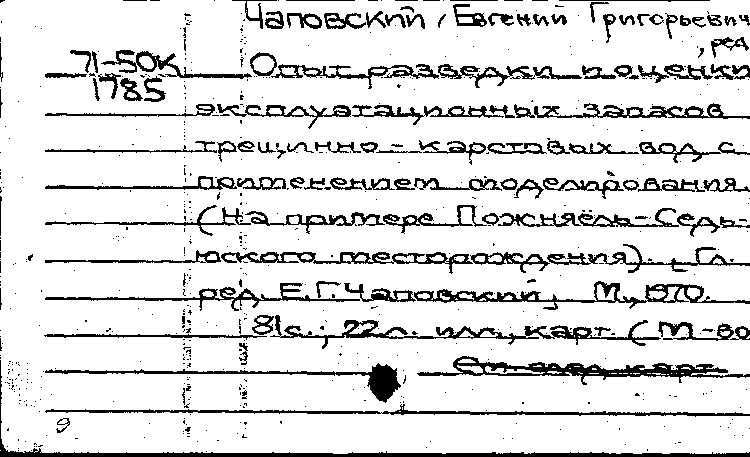 Чаповский, Евгений Григорьевич
, ред
71-50К Опыт разведки и оценки
1785
эксплуатационных запасов
трещинно-карстовых вод с
применением моделирования.
(На примере Пожняёль-Седь-
юского месторождения). [Гл.
ред. Е.Г. Чаповский], М., 1970.
81с.; 22л. илл., карт. (М-во
См. след. карт.
9